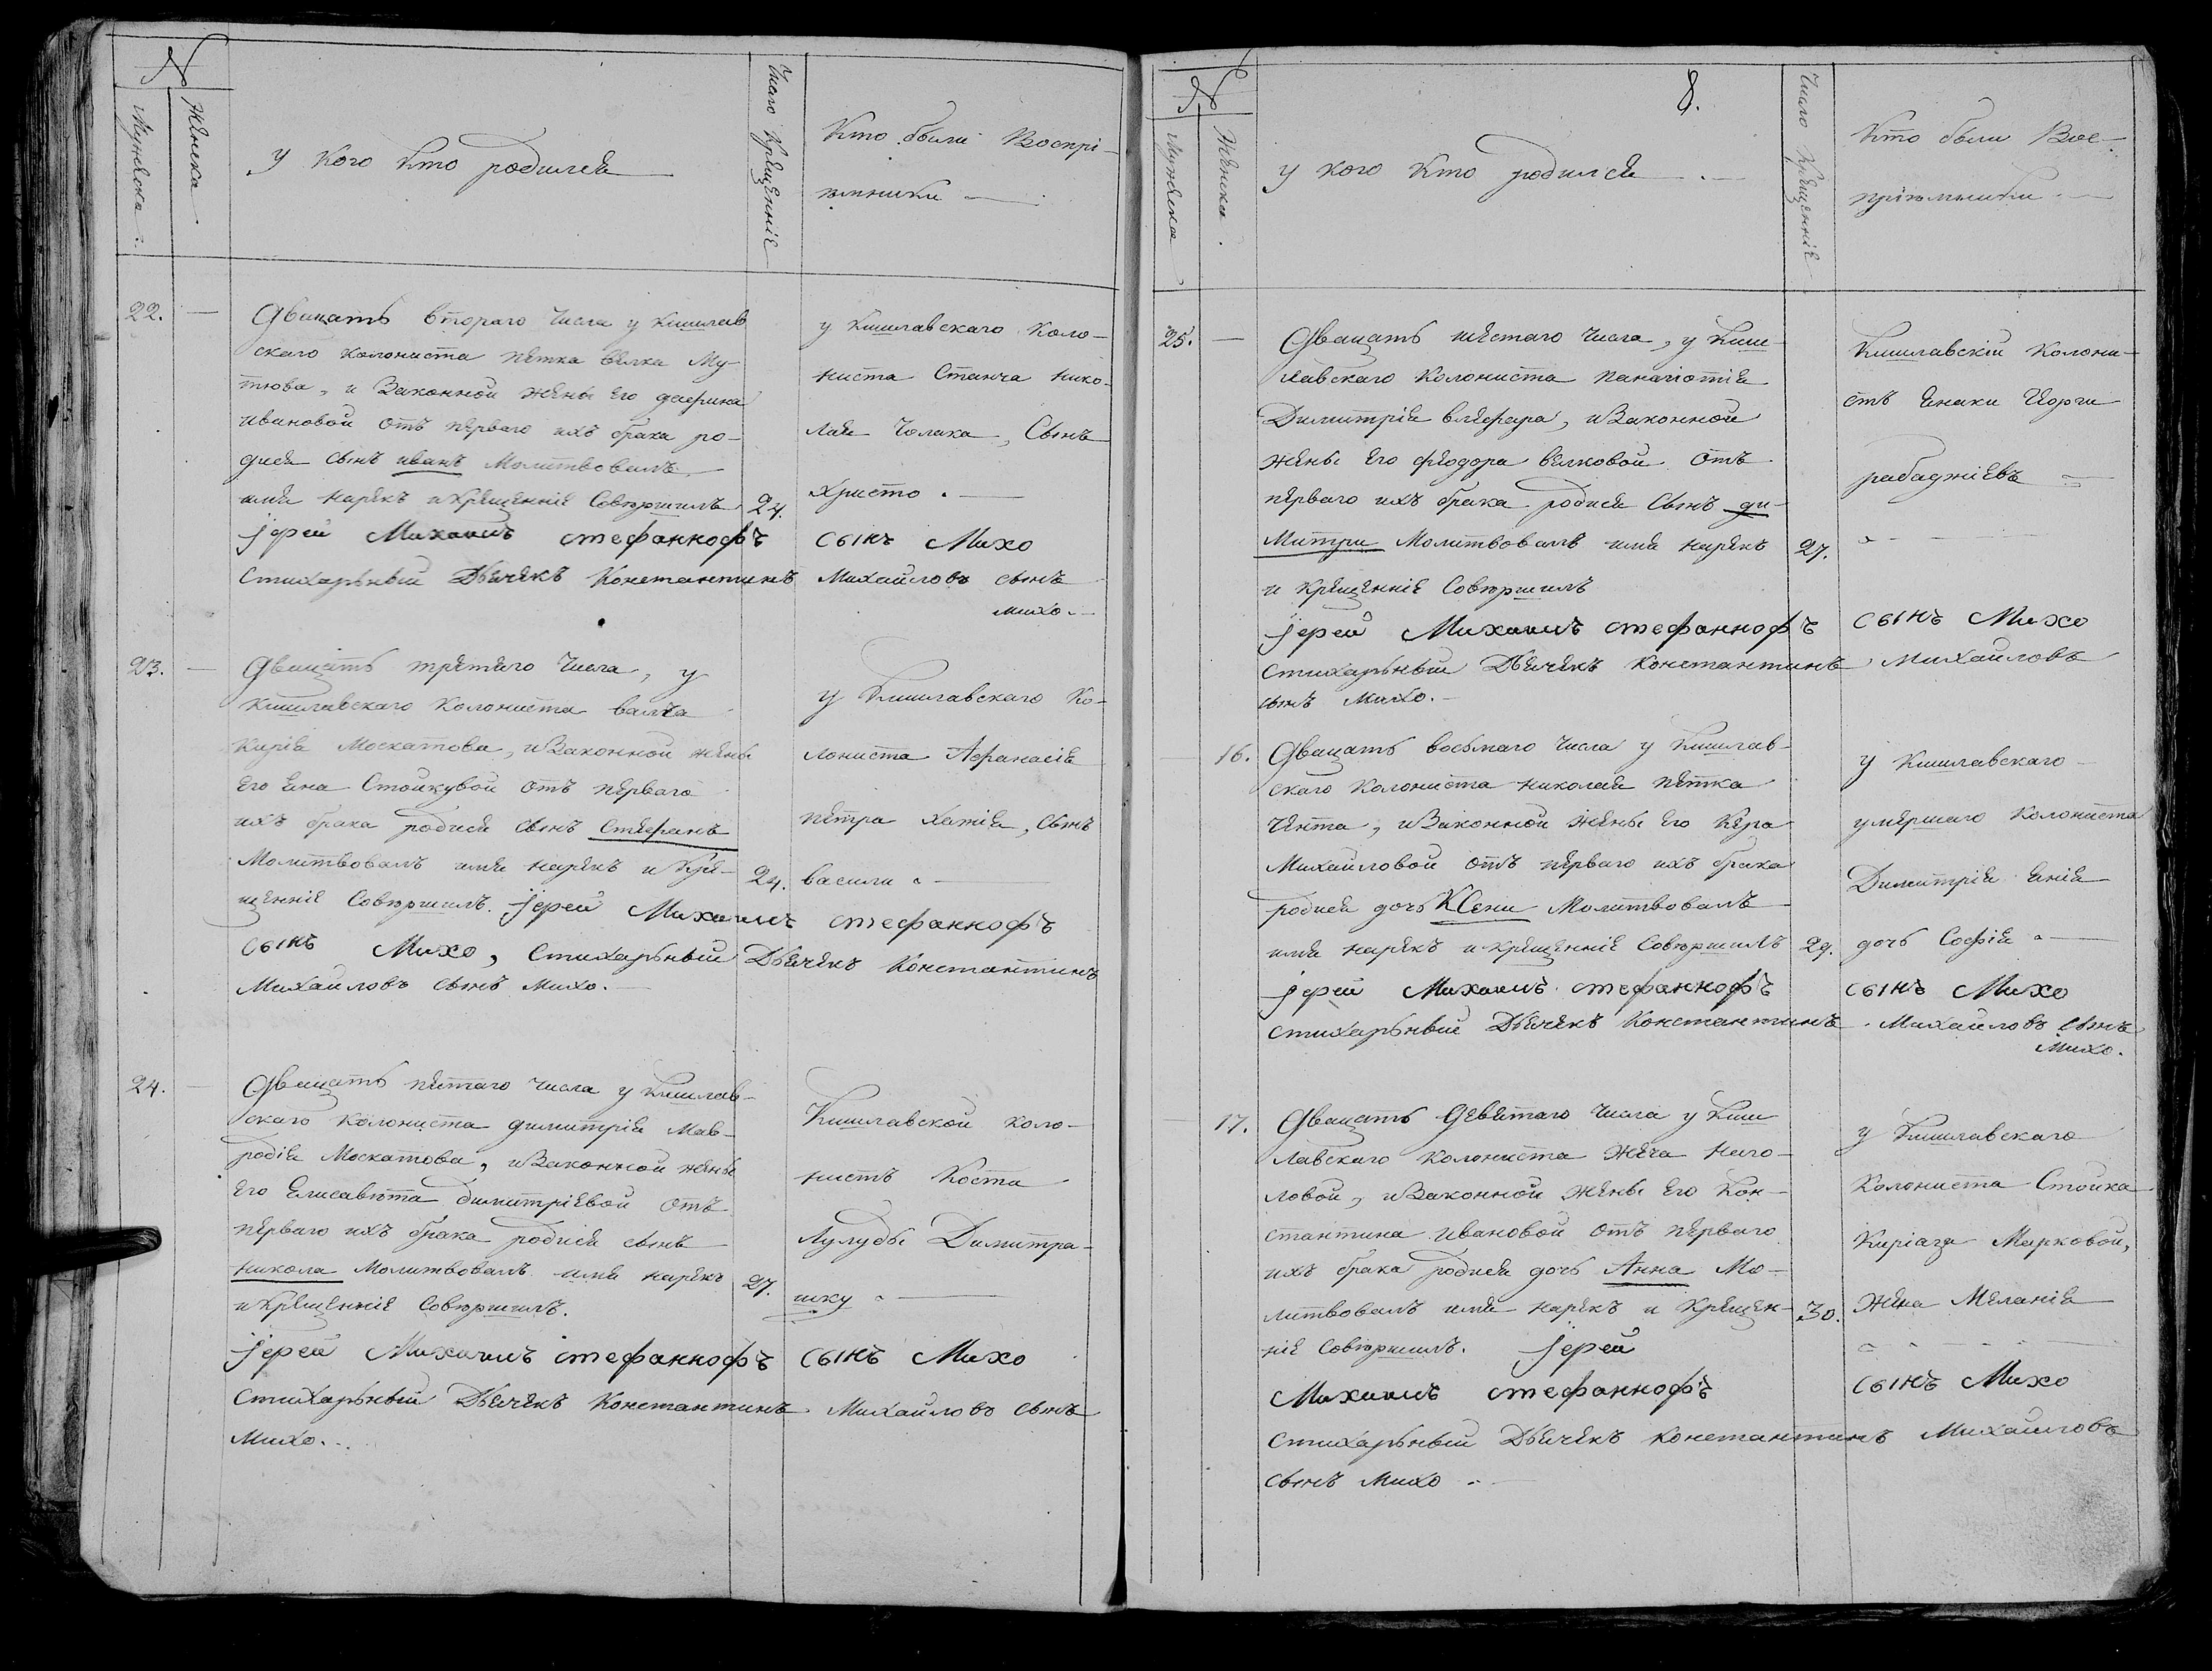 N
Мужеска
Женска
у кого кто родился
Число крещенніе
Кто были Воспрі-
емники
22.
Двацать втораго числа у Кишлав
скаго колониста петка велка Му-
тюва, и Законной жены его дафина
ивановой отъ перваго ихъ брака ро-
дися сынъ иванъ Молитвовалъ
имя нарекъ и крещенніе Совершилъ
24.
јерей Михаилъ стефанкофъ
стихарьный Дьячекъ Константинъ
у Кишлавскаго Коло-
ниста Станча Нико-
лая Чолака, Сынъ
христо.
сынъ Михо
Михайловъ сынъ
михо.
23.
Двацать третяго числа, у
Кишлавскаго Колониста
Кирія Москатова, и Законной жены
его Яна Стойкувой отъ перваго
ихъ брака родися сынъ Стефанъ
Молитвовалъ имя нарекъ и Кре-
щенніе Совершилъ. јерей Михаилъ стефанкофъ
24.
сынъ Михо, Стихарьный Дьячекъ Константинъ
Михайловъ сынъ Михо.
у Кишлавскаго Ко-
лониста Афанасія
петра хатія, сынъ
васили
24.
Двацать пятаго числа у Кишлав-
скаго колониста димитрія Мав-
родія Москатова, и Законной жены
его Елисавета димитріевой отъ
перваго ихъ брака родися сынъ
никола Молитвовалъ имя нарекъ
27.
и Крещенніе Совершилъ.
јерей Михаилъ стефанкофъ
стихарьный Дьячекъ Константинъ
Михо.
Кишлавской коло-
нистъ Коста
Лулуды Димитра-
шку
сынъ Михо
Михайловъ сынъ
8.
N
Мужеска
Женска.
у кого Кто родился
Число Крещенніе
Кто были Вос-
пріемники
25.
Двацать шестаго числа, у Киш-
лавскаго Колониста панагіотія
Димитрія влефара, и Законной
жены его феодора велковой отъ
перваго ихъ брака родися сынъ ди-
митри Молитвовалъ имя нарекъ
27.
и крещенніе Совершилъ
јерей Михаилъ стефанкофъ
стихарьный Дьячекъ Константинъ
сынъ Михо.
Кишлавскій Колони-
стъ Янаки Георги
рабаджіевъ
сынъ Михо
Михайловъ
16.
Двацать восьмаго числа у Кишлав-
скаго Колониста николая петка
Чента, и Законной жены его Кера
Михайловой отъ перваго ихъ брака
родися дочь КСени Молитвовалъ
имя нарекъ и крещенніе Совершилъ
29.
јерей Михаилъ стефанкофъ
стихарьный Дьячекъ Константинъ
у Кишлавскаго
умершаго Колониста
Димитрія Янія
дочь Софія
сынъ Михо
Михайловъ сынъ
Михо.
17.
Двацать девятаго числа у Киш
лавскаго колониста Жеча Наго-
ловой, и Законной жены его Кон-
стантина ивановой отъ перваго
ихъ брака родися дочь Анна Мо-
литвовалъ имя нарекъ и крещен-
30.
ніе Совершилъ. јерей
Михаилъ стефанкофъ
стихарьный Дьячекъ константинъ
сынъ Михо
у Кишлавскаго
Колониста Стойка
Киріазя Марковой,
Жена Меланія
сынъ Михо
Михайловъ